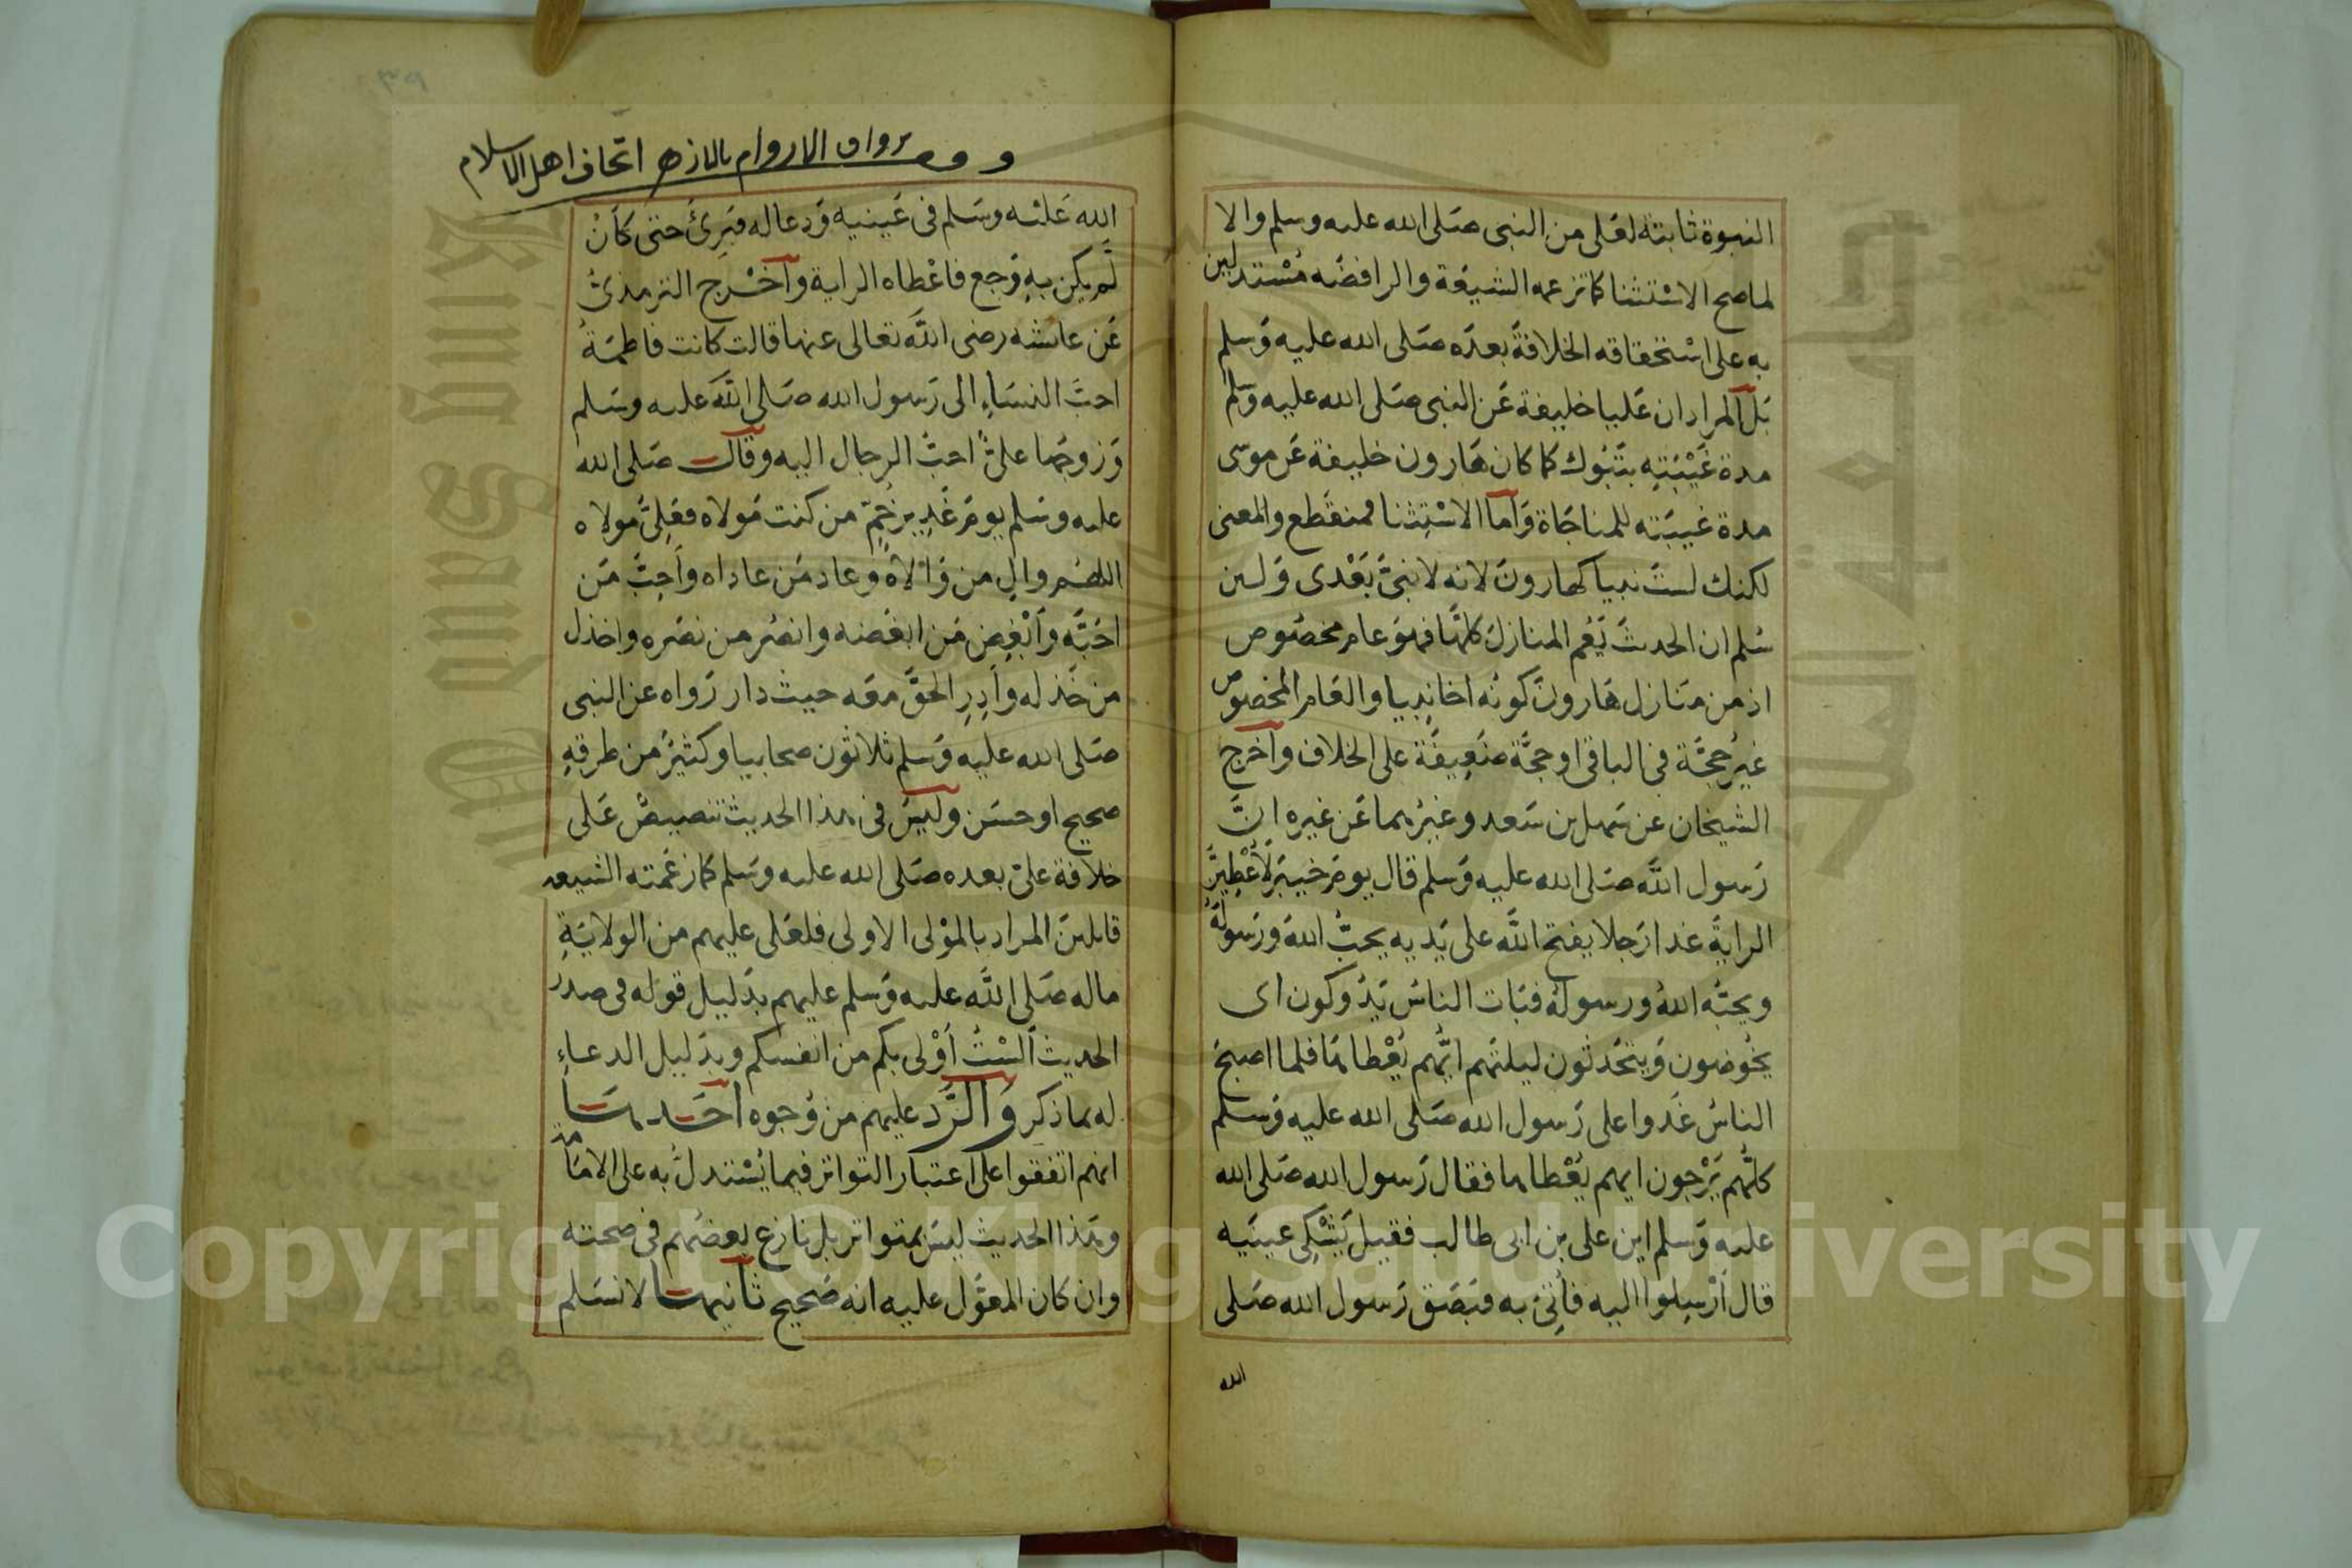 النبوة ثابتة لعَلى من النبى صَلى الله عليه وسلم والا
لما صح الاسْتثنا كما تزعمه الشيعَة والرافضَه مُسْتدلين
به على اسْتحقاقه الخلافةَ بعدَه صَلى الله عليه وَسلم
بَل المراد ان عَليا خليفة عَن النبى صَلى الله عليه وَسلم
مدة غَيْبَتِهِ بتَبُوك كما كان هَارون خليفة عَن موسى
مدة غيبَته للمناجَاة وَاما الاسْتِثنا فمنقَطع والمعنى
لكنك لستَ نبيا كهارونَ لانه لا نبىَّ بَعْدى وَلين
سُلم ان الحديثَ يَعُم المنازلَ كلهَا فهوَ عام مخصُوص
اذ من مَنازل هَارونَ كونُه اخا نبِيا والعَام المخصُوص
غير حُجَّة فى الباقى او حجَّة ضَعِيفَة على الخلاف واَخرج
الشيخان عن سَهل بن سَعد وغيرُهما عَن غيره انَّ
رَسول اللَّه صَلى الله عليه وَسلم قال يومَ خيبَر لَأُعْطِيَنَّ
الرايةَ غدا رَجلا يفتح اللَّه على يَديه يحبُّ اللهَ وَرَسولَهُ
ويحبُّه اللهُ ورسولهُ فبَات الناسُ يَدُوكون اى
يخُوضون وَيتحَدثون ليلتَهم ايُّهم يُعْطاهَا فلما اصبحَ
الناسُ غَدوا على رَسول الله صَلى الله عليه وَسلم
كلُّهم يَرْجون ايهم يُعْطاها فقال رَسول الله صَلى الله
عليه وَسلم اين على بن ابى طالب فقيل يَشْتكِى عينَيه
قال أرْسِلوا اليه فأُتِىَ به فبَصَق رَسول الله صَلى
الله
رواق الاروام بالازهر اتحاف اهل الاسلام
الله عَليْه وسَلم فى عَينيه وَدعا له فبَرِئَ حتى كَأنْ
لَم يكن بهِ وَجع فاعْطاه الراية واَخْرج الترمذىُّ
عَن عائشه رضى اللَّه تعالى عنها قالت كانت فاطمَةُ
احبَّ النسَاءِ الى رَسول الله صَلى اللَّه عليه وسَلم
وَزوجهَا علىٌّ احبُّ الرجال اليه وقال صَلى الله
عليه وسَلم يومَ غَدِيرِ خُمّ من كنت مَولاه فعَلِىٌّ مولاه
اللهُم والِ من وَالاهُ وعاد مَن عاداه وأَحِبَّ مَن
احَبَّه وأَبْغِض مَن ابغَضه وانصُر من نصَره واخذل
من خَذله وأدِرِ الحقَّ معَه حيث دار رَواه عن النبى
صَلى الله عليه وَسلم ثلاثون صحابيا وكثيرٌ من طرقهِ
صحيح او حسَن وليسَ فى هذا الحديث تنصيصٌ عَلى
خلافة علىّ بعده صَلى الله عليه وسَلم كما زعَمته الشيعه
قايلينَ المراد بالمَوْلى الاولى فلعَلى عليهم من الولايَةِ
ماله صَلى اللَّه عليه وَسلم عليهم بدَليل قوله فى صدر
الحديث ألسْتُ أَوْلى بكم من انفسكم وبدَليل الدعاءِ
له بما ذكر وَالرَّد عليهم من وُجوه احَدهَا
انهم اتفقوا على اعتبار التواتر فيما يُسْتدلُّ به على الامَامة
وهَذا الحديث ليسَ بمتواتر بل نازع بعضُهم فى صحته
وان كان المعَوَّل عليه انه صَحيح ثانيهَا لا نسَلم
Copyright © King Saud University